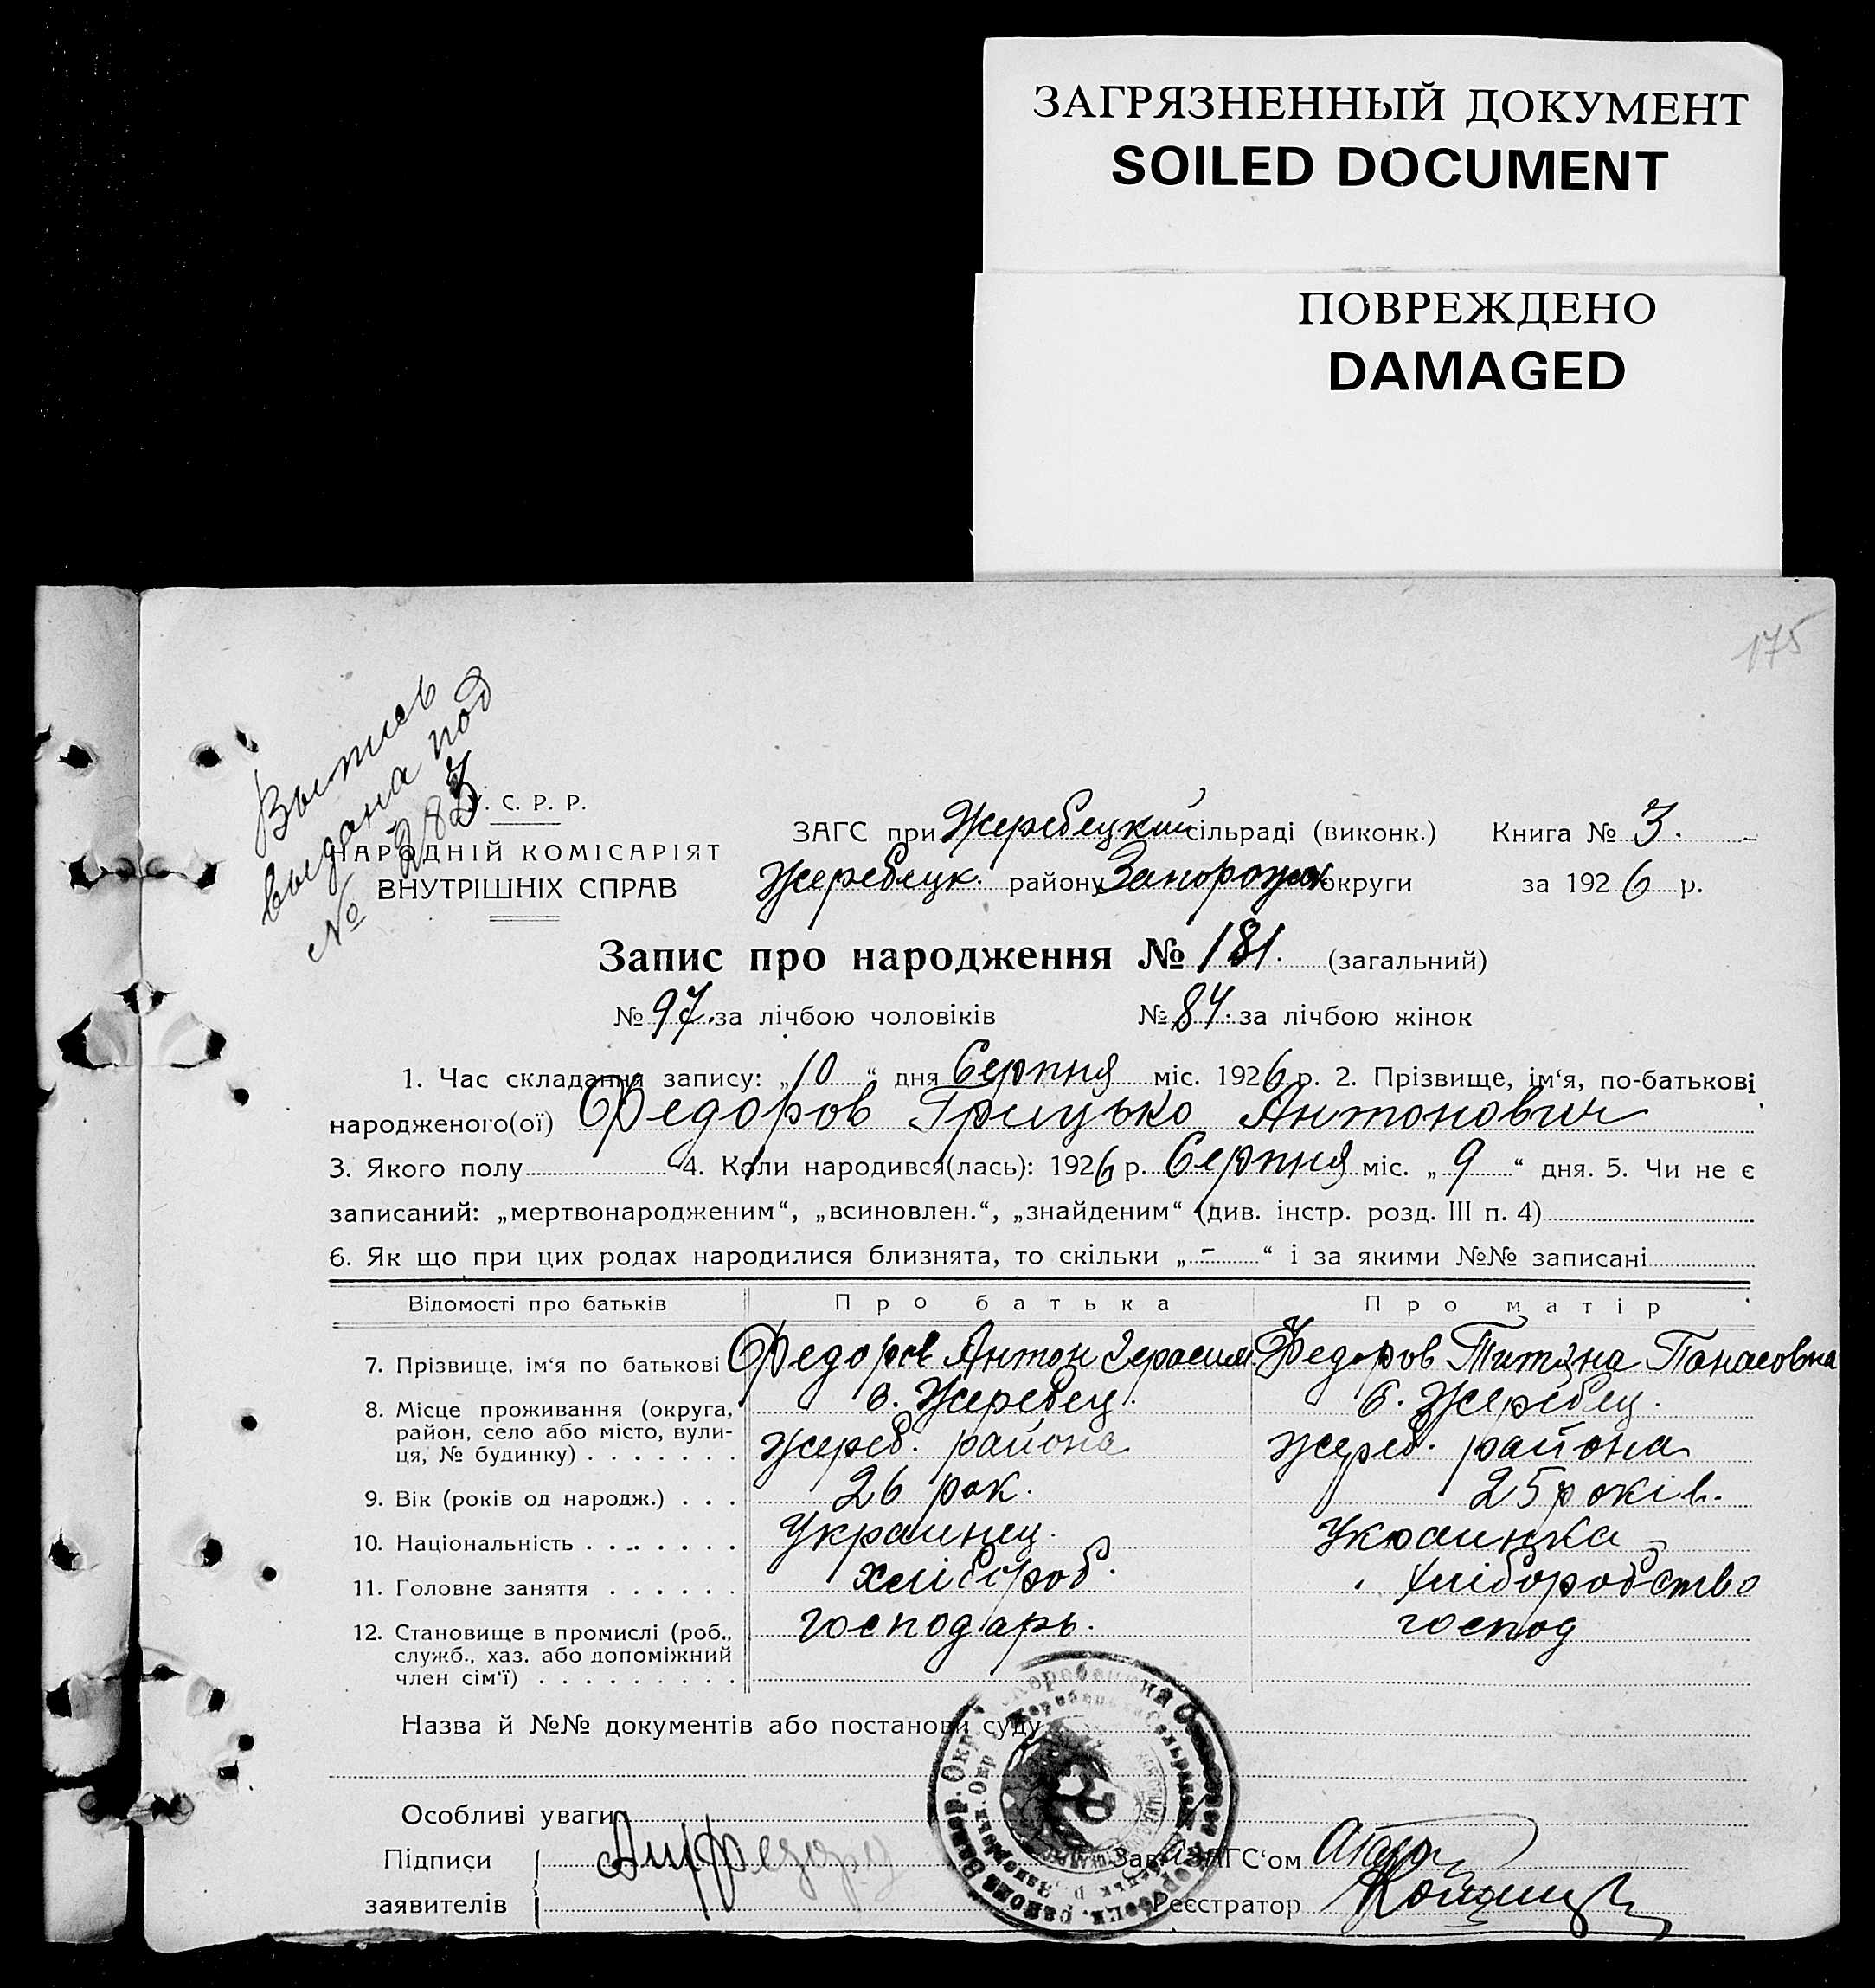 ЗАГРЯЗНЕННЫЙ ДОКУМЕНТ
SOILED DOCUMENT
ПОВРЕЖДЕНО
DAMAGED
175
Выпись
выдана под
№ 283
С. Р. Р.
НАРОДНІЙ КОМІСАРІЯТ
ВНУТРІШНІХ СПРАВ
ЗАГС при Жеребецкий сільраді (виконк.) Книга № 3.
Жеребецк. району Запорожск округи за 1926 р.
Запис про народження № 181. (загальний)
№ 97. за лічбою чоловіків № 84. за лічбою жінок
1. Час складання запису: „10“ дня Серпня міс. 1926 р. 2. Прізвище, ім‘я, по-батькові
народженого(ої) Федоров Грицько Антонович
3. Якого полу 4. Коли народився(лась): 1926 р. Серпня міс. „9“ дня. 5. Чи не є
записаний: „мертвонародженим“, „всиновлен.“, „знайденим“ (див. інстр. розд. III п. 4)
6. Як що при цих родах народилися близнята, то скільки „-“ і за якими №№ записані
Відомості про батьків Про батька Про матір
7. Прізвище, ім‘я по батькові Федоров Антон Герасим. Федоров Титяна Панасовна
8. Місце проживання (округа, район, село або місто, вули-ця, № будинку) . . . . . . . с. Жеребец. с. Жеребец.
Жереб. района Жереб. района
9. Вік (років од народж.) . . . 26 рок. 25 років.
10. Національність . . . . . . . Украинец. Украинка
11. Головне заняття . . . . . . хлібороб. хліборобство
12. Становище в промислі (роб., служб., хаз. або допоміжний член сім‘ї) . . . . . . . . . господарь. господ
Назва й №№ документів або постанови суду
Особливі уваги
Підписи
заявителів
Зав. ЗАГС‘ом
Реєстратор